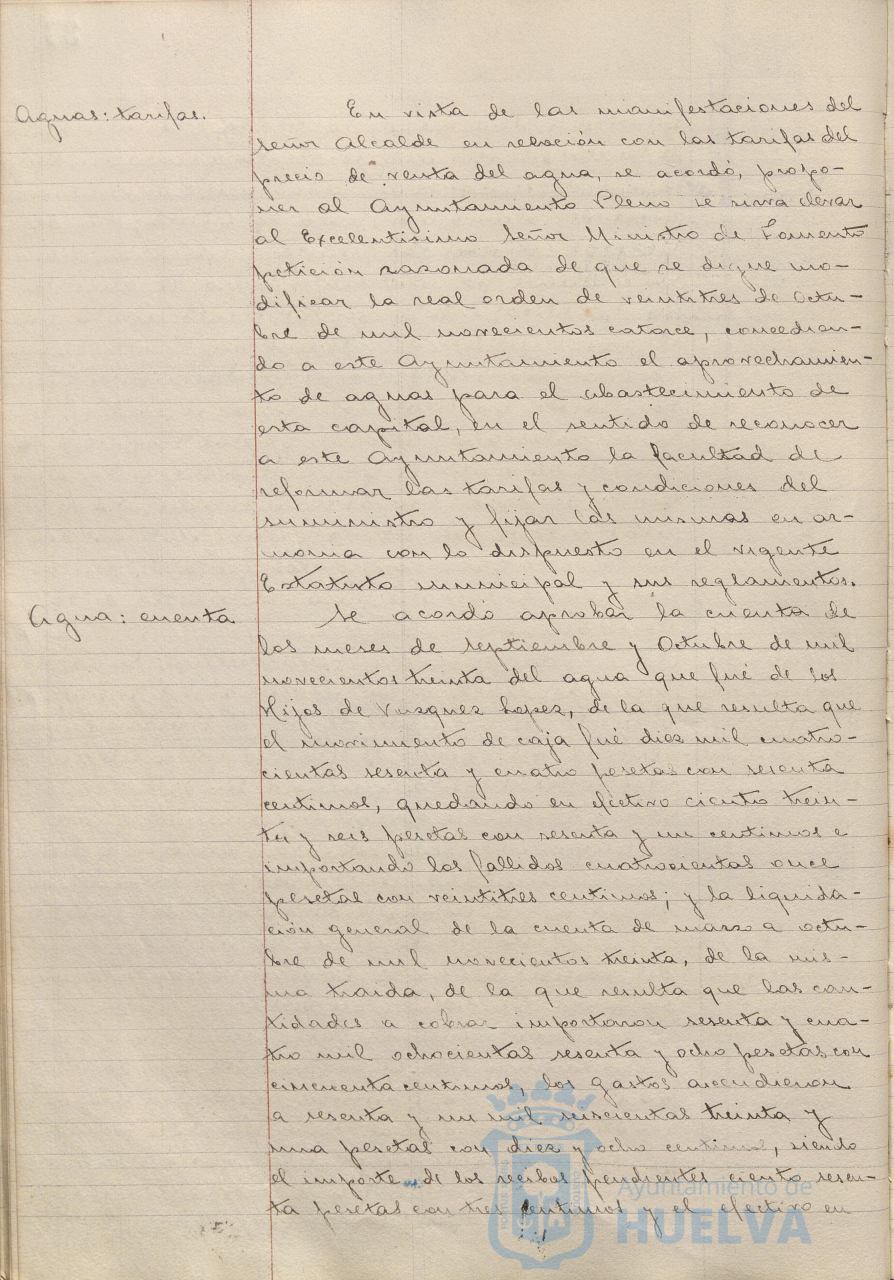 Aguas: tarifas.
En vista de las manifestaciones del
señor Alcalde en relación con las tarifas del
precio de venta del agua, se acordó, propo-
ner al Ayuntamiento Pleno se sirva elevar
al Excelentisimo Señor Ministro de Fomento
petición razonada de que se digne mo-
dificar la real orden de veintitres de Octu-
bre de mil novecientos catorce, concedien-
do a este Ayuntamiento el aprovechamien-
to de aguas para el abastecimiento de
esta capital, en el sentido de reconocer
a este Ayuntamiento la facultad de
reformar las tarifas y condiciones del
suministro y fijar las mismas en ar-
monia con lo dispuesto en el vigente
Estatuto municipal y sus reglamentos.
Agua: cuenta
Se acordó aprobar la cuenta de
los meses de septiembre y Octubre de mil
novecientos treinta del agua que fué de los
Hijos de Vazquez Lopez, de la que resulta que
el movimiento de caja fué diez mil cuatro-
cientas sesenta y cuatro pesetas con sesenta
centimos, quedando en efectivo ciento trein-
ta y seis pesetas con sesenta y un centimos e
importando los fallidos cuatrocientas once
pesetas con veintitres centimos; y la liquida-
ción general de la cuenta de marzo a octu-
bre de mil novecientos treinta, de la mis-
ma traida, de la que resulta que las can-
tidades a cobrar importaron sesenta y cua-
tro mil ochocientas sesenta y ocho pesetas con
cincuenta centimos, los gastos ascendieron
a sesenta y un mil seiscientas treinta y
una pesetas con diez y ocho centimos, siendo
el importe de los recibos pendientes ciento sesen-
ta pesetas con tres centimos y el efectivo en
Ayuntamiento de
HUELVA